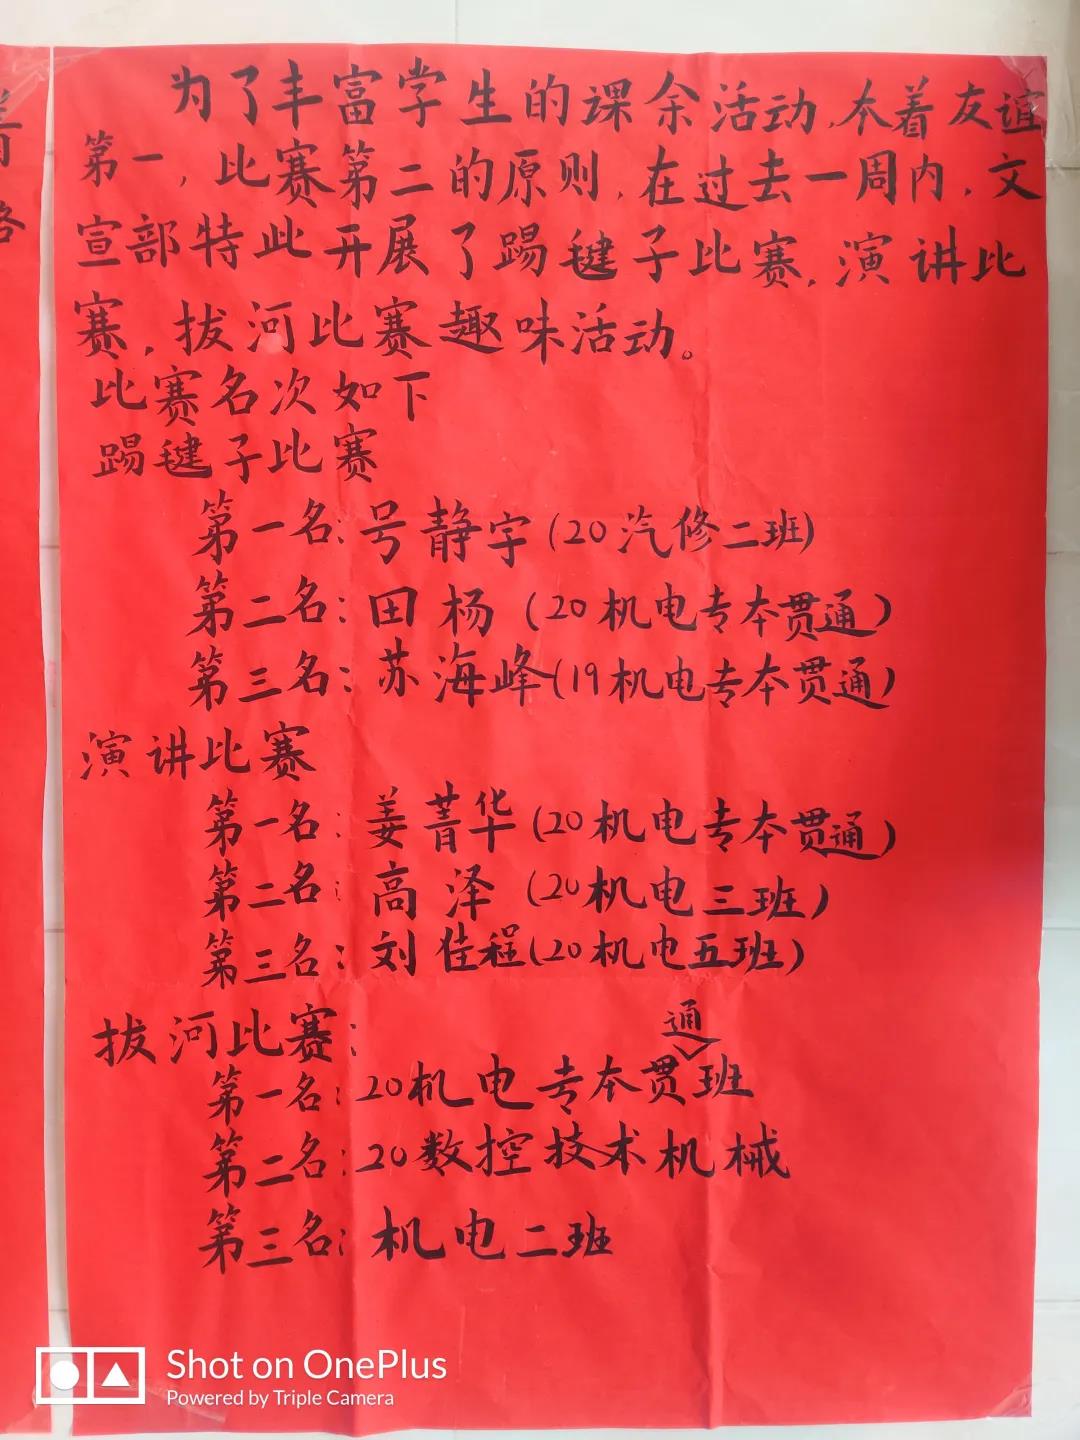 为了丰富学生的课余活动,本着友谊
第一,比赛第二的原则,在过去一周内,文
宣部特此开展了踢毽子比赛,演讲比
赛,拔河比赛趣味活动。
比赛名次如下
踢毽子比赛
第一名:号静宇(20汽修二班)
第二名:田杨(20机电专本贯通)
第三名:苏海峰(19机电专本贯通)
演讲比赛
第一名:姜菁华(20机电专本贯通)
第二名:高泽(20机电三班)
第三名:刘佳程(20机电五班)
拔河比赛:
第一名:20机电专本贯通班
第二名:20数控技术机械
第三名:机电二班
Shot on OnePlus
Powered by Triple Camera